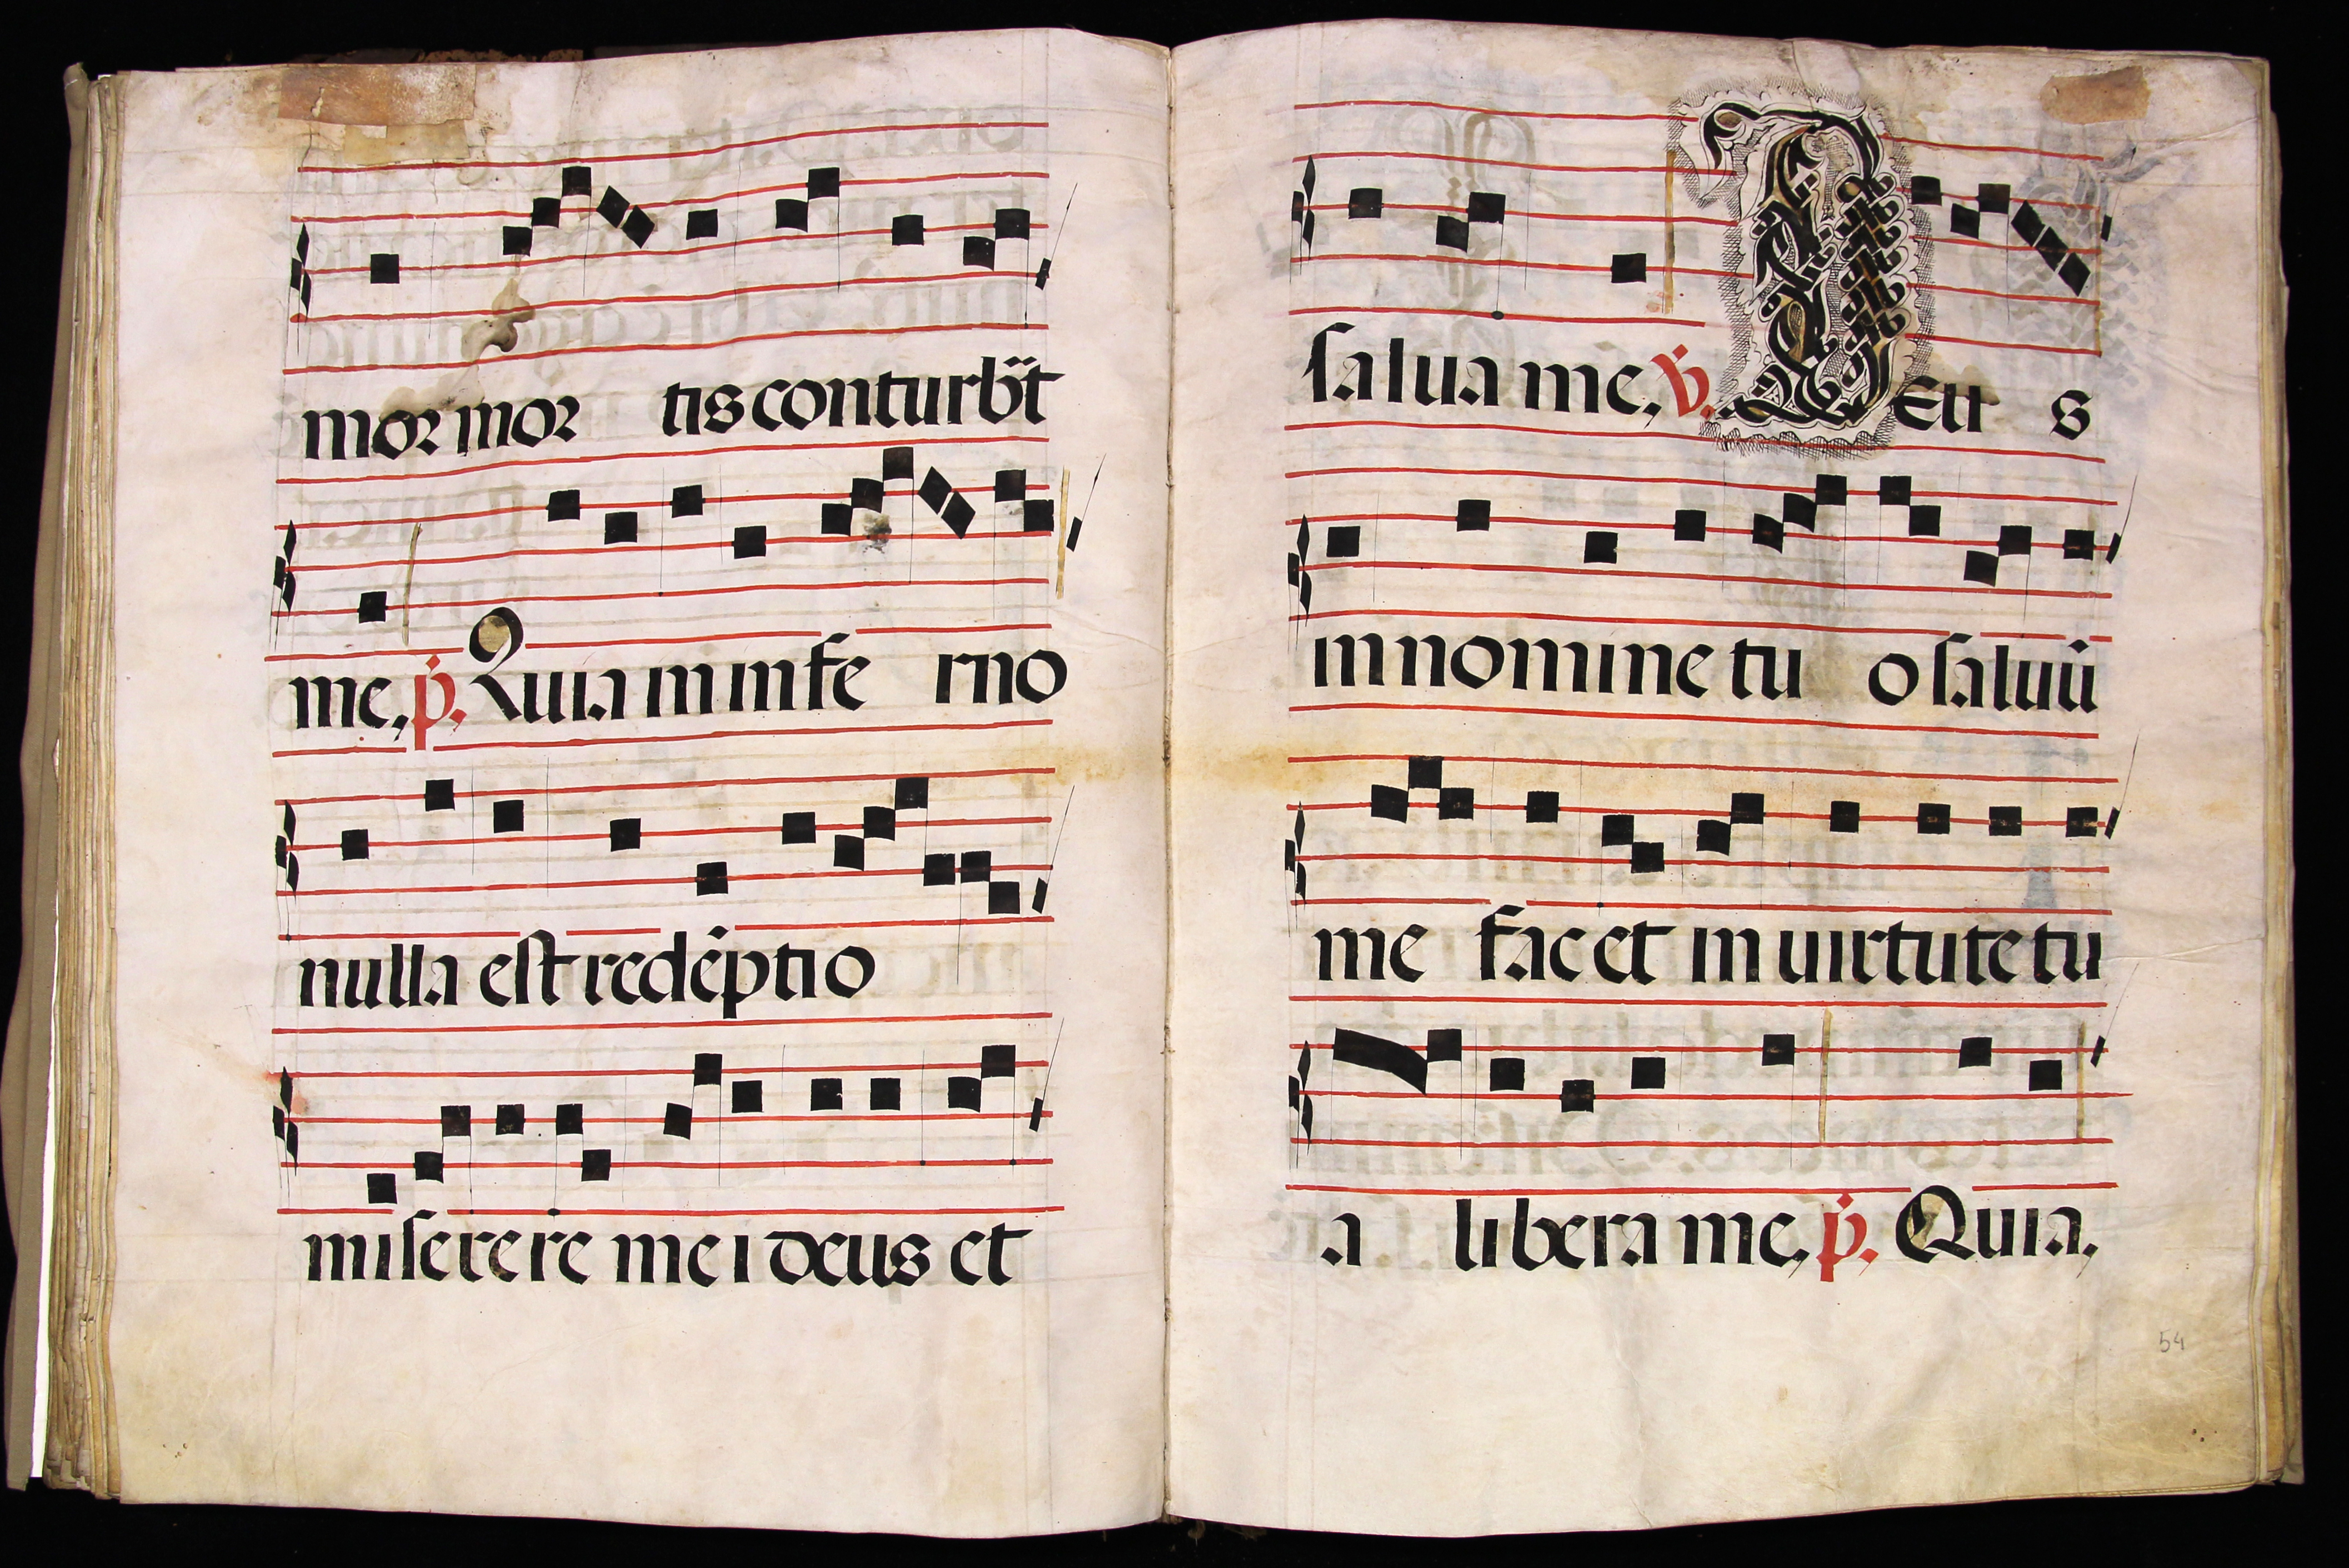 mor mor tis conturbt̃
me, p̃. Quia in infe rno
nulla est redẽptio
miserere mei deus et
salua me, ṽ. Deu s
in nomine tu o saluũ
me fac et in uirtute tu
a libera me, p̃. Quia,
54